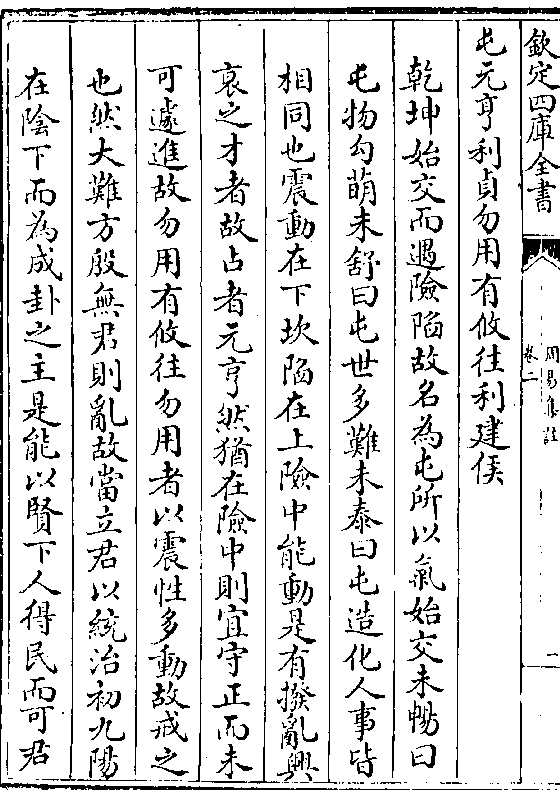 欽定四庫全書
周易集註
卷二
一
屯元亨利貞勿用有攸往利建侯
乾坤始交而遇險陷故名為屯所以氣始交未暢曰
屯物勾萌未舒曰屯世多難未泰曰屯造化人事皆
相同也震動在下坎陷在上險中能動是有撥亂興
衰之才者故占者元亨然猶在險中則宜守正而未
可遽進故勿用有攸往勿用者以震性多動故戒之
也然大難方殷無君則亂故當立君以統治初九陽
在陰下而為成卦之主是能以賢下人得民而可君